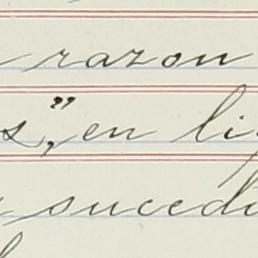 razon
s", en li
sucedi